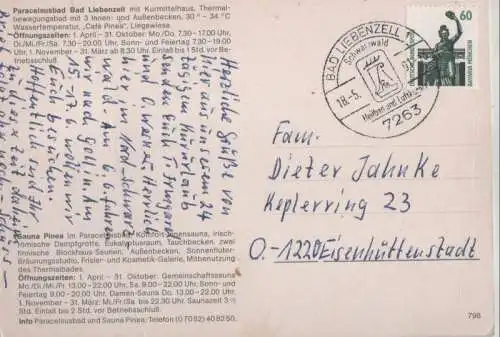 Paracelsusbad Bad Liebenzell mit Kurmittelhaus, Thermal-
bewegungsbad mit 3 Innen- und Außenbecken, 30° – 34°C
Wassertemperatur, „Café Pineia", Liegewiese.
Öffnungszeiten: 1. April – 31. Oktober: Mo./Do. 7.30–17.00 Uhr,
Di./Mi./Fr./Sa. 7.30–20.00 Uhr, Sonn- und Feiertag
1. November – 31. März ab 8.30 Uhr. Einlaß bis 1 Std. vor Be-
triebsschluß.
Sauna Pinea im Paracelsusbad: Komfort-Pinensauna, irisch-
römische Dampfgrotte, Eukalyptusraum, Tauchbecken, zwei
finnische Blockhaus-Saunen, Außenbecken, Sonnenfluter-
Bräunungsstudio, Frisier- und Kosmetik-Galerie, Mitbenutzung
des Thermalbades.
Öffnungszeiten: 1. April – 31. Oktober: Gemeinschaftssauna
Mo./Di./Mi./Fr. 13.00–22.00 Uhr, Sa. 9.00–22.00 Uhr, Sonn- und
Feiertag 9.00–20.00 Uhr, Damen-Sauna Do. 13.00–22.00 Uhr.
1. November – 31. März: Mo./Fr./Sa. bis 22.30 Uhr. Saunazeit 3½
Std. Einlaß bis 2 Std. vor Betriebsschluß.
Info Paracelsusbad und Pinea-Sauna, Telefon (0 70 52) 40 82 50.
Herzliche Grüße von
hier aus unserem 24
tägigen Kururlaub
senden Euch
und O. Werner. Herrlich
hier im Nord-Schwarz
wald. Am 6.6. fahren
wir nach
15.-17.6. wollen wir
Euch besuchen.
Hoffentlich seid Ihr
zu dieser Zeit daheim
BAD LIEBENZELL
Schwarzwald
18.-5.
Heilbad und Luftkurort
7263
60
DEUTSCHE BUNDESPOST
BAVARIA MÜNCHEN
Fam.
Dieter Jahnke
Keplerring 23
O.-1220 Eisenhüttenstadt
798